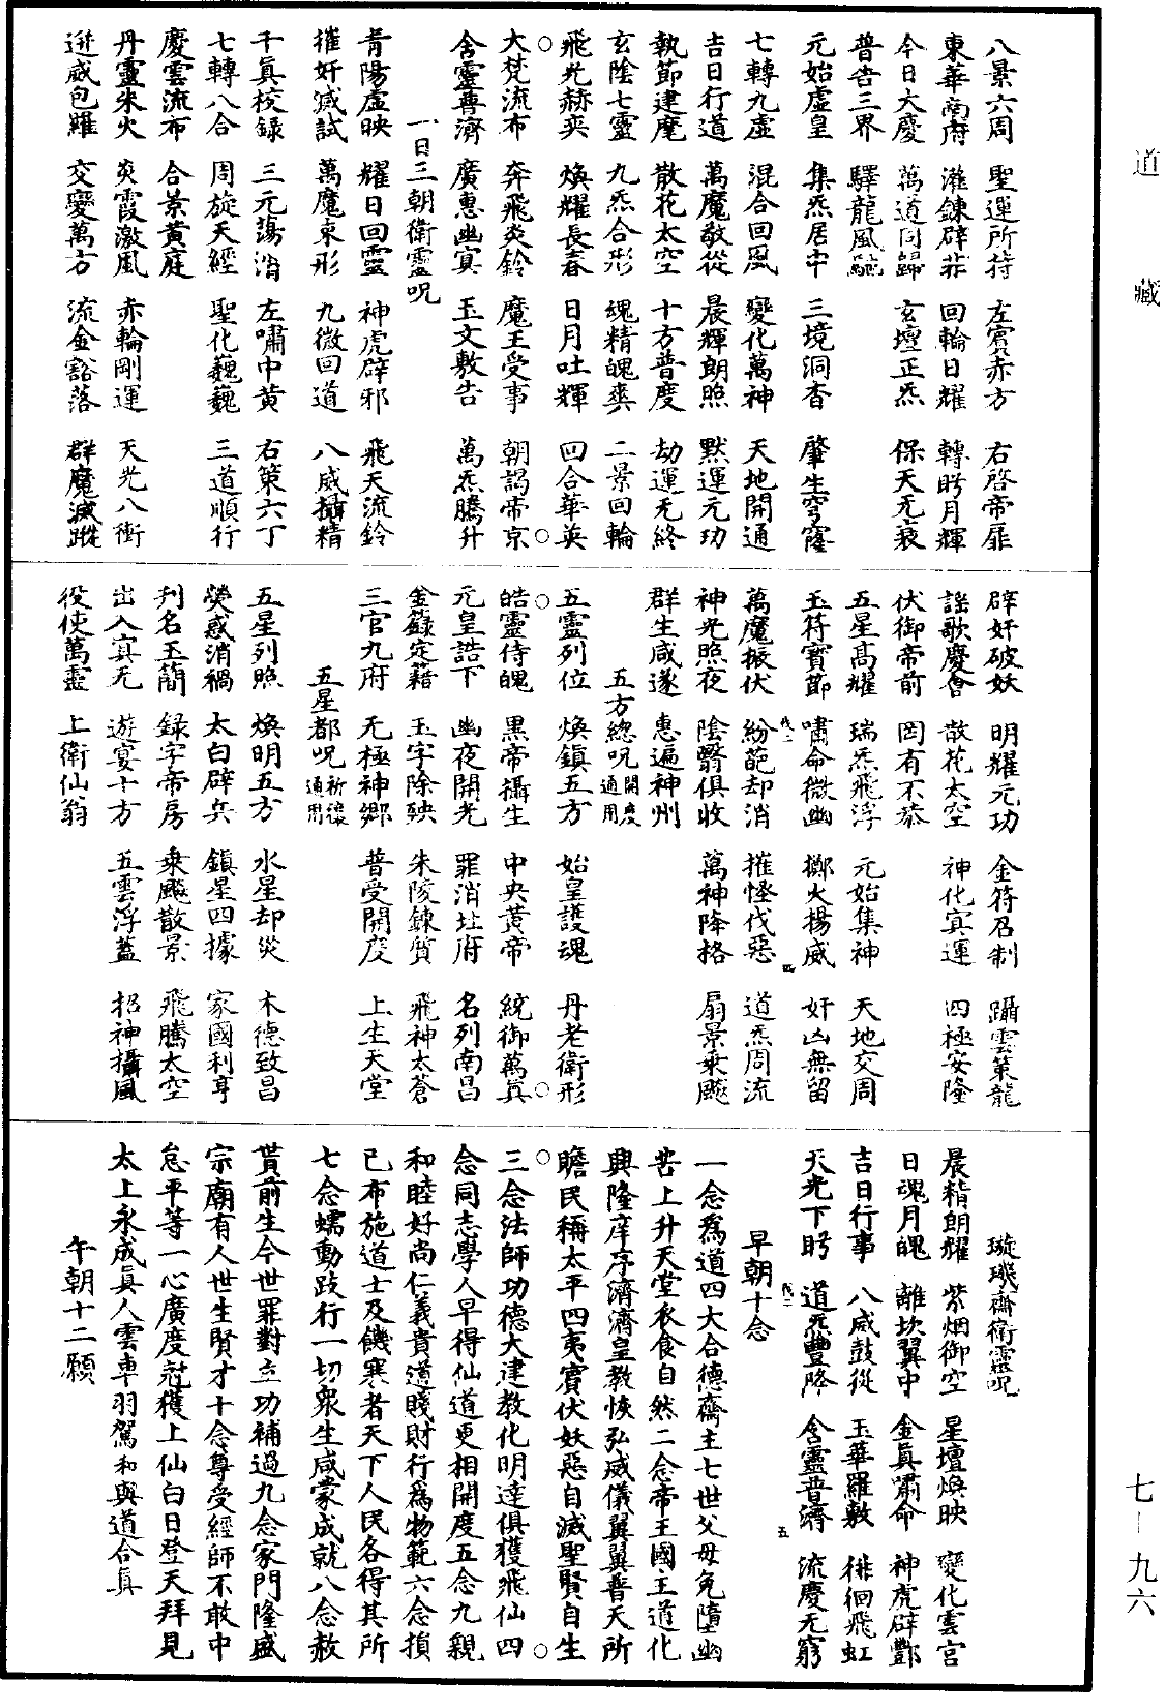 道藏
八景六周 聖運所持 左賓赤方 右啓帝扉
東華南府 灌鍊辟非 回輪日耀 轉盻月輝
今日大慶 萬道同歸 玄壇正炁 保天无衰
普告三界 驛龍風馳
元始虛皇 集炁居中 三境洞杳 肇生穹窿
七轉九虛 混合回風 變化萬神 天地開通
吉日行道 萬魔敬從 晨輝朗照 默運元功
執節建麾 散花太空 十方普度 劫運无終
玄陰七靈 九炁合形 魂精魄爽 二景回輪
飛光赫奕 煥耀長春 日月吐輝 四合華英
大梵流布 奔飛炎鈴 魔王受事 朝謁帝京
含靈普濟 廣惠幽冥 玉文敷告 萬炁騰升
一日三朝衛靈呪
青陽虛映 耀日回靈 神虎辟邪 飛天流鈴
摧奸滅試 萬魔束形 九微回道 八威攝精
千眞校錄 三元蕩消 左嘯中黄 右策六丁
七轉八合 周旋天經 聖化巍巍 三道順行
慶雲流布 合景黄庭
丹靈朱火 炎霞激風 赤輪剛運 天光八衝
逬威包羅 交變萬方 流金豁落 群魔滅蹤
辟奸破妖 明耀元功 金符召制 躡雲策龍
謡歌慶會 散花太空 神化冥運 四極安隆
伏御帝前 罔有不恭
五星髙耀 瑞炁飛浮 元始集神 天地交周
玉符寶節 嘯命微幽 擲火揚威 奸凶無留
萬魔振伏 紛葩却消 摧怪伐惡 道炁周流
神光照夜 陰翳俱收 萬神降格 扇景乗飈
群生咸遂 惠遍神州
五方緫呪開度通用
五靈列位 煥鎮五方 始皇護魂 丹老衛形
皓靈侍魄 黒帝攝生 中央黄帝 統御萬眞
元皇誥下 幽夜開光 罪消北府 名列南昌
金籙定籍 玉字除殃 朱陵鍊質 飛神太蒼
三官九府 无極神鄉 普受開度 上生天堂
五星都呪祈禳通用
五星列照 煥明五方 水星却灾 木德致昌
熒惑消禍 太白辟兵 鎮星四據 家國利亨
刋名玉簡 録字帝房 乗飈散景 飛騰太空
出入冥无 遊宴十方 五雲浮蓋 招神攝風
役使萬靈 上衛仙翁
璇璣齋衛靈呪
晨精朗耀 紫烟御空 星壇煥映 變化雲宫
日魂月魄 離坎翼中 金眞嘯命 神虎辟酆
吉日行事 八威鼓從 玉華羅敷 徘徊飛虹
天光下盻 道炁豐降 含靈普濟 流慶无窮
早朝十念
一念爲道四大合德齋主七世父母免墮幽
苦上升天堂衣食自然二念帝王國主道化
興隆庠序濟濟皇教恢弘威儀翼翼普天所
瞻民稱太平四夷賓伏妖惡自滅聖賢自生
三念法師功德大建教化明達俱獲飛仙四
念同志學人早得仙道更相開度五念九親
和睦好尚仁義貴道賤財行爲物範六念損
己布施道士及饑寒者天下人民各得其所
七念蠕動跂行一切衆生咸蒙成就八念赦
貰前生今世罪對立功補過九念家門隆盛
宗廟有人世生賢才十念尊受經師不敢中
怠平等一心廣度冠獲上仙白日登天拜見
太上永成眞人雲車羽駕和與道合眞
午朝十二願
七－九六